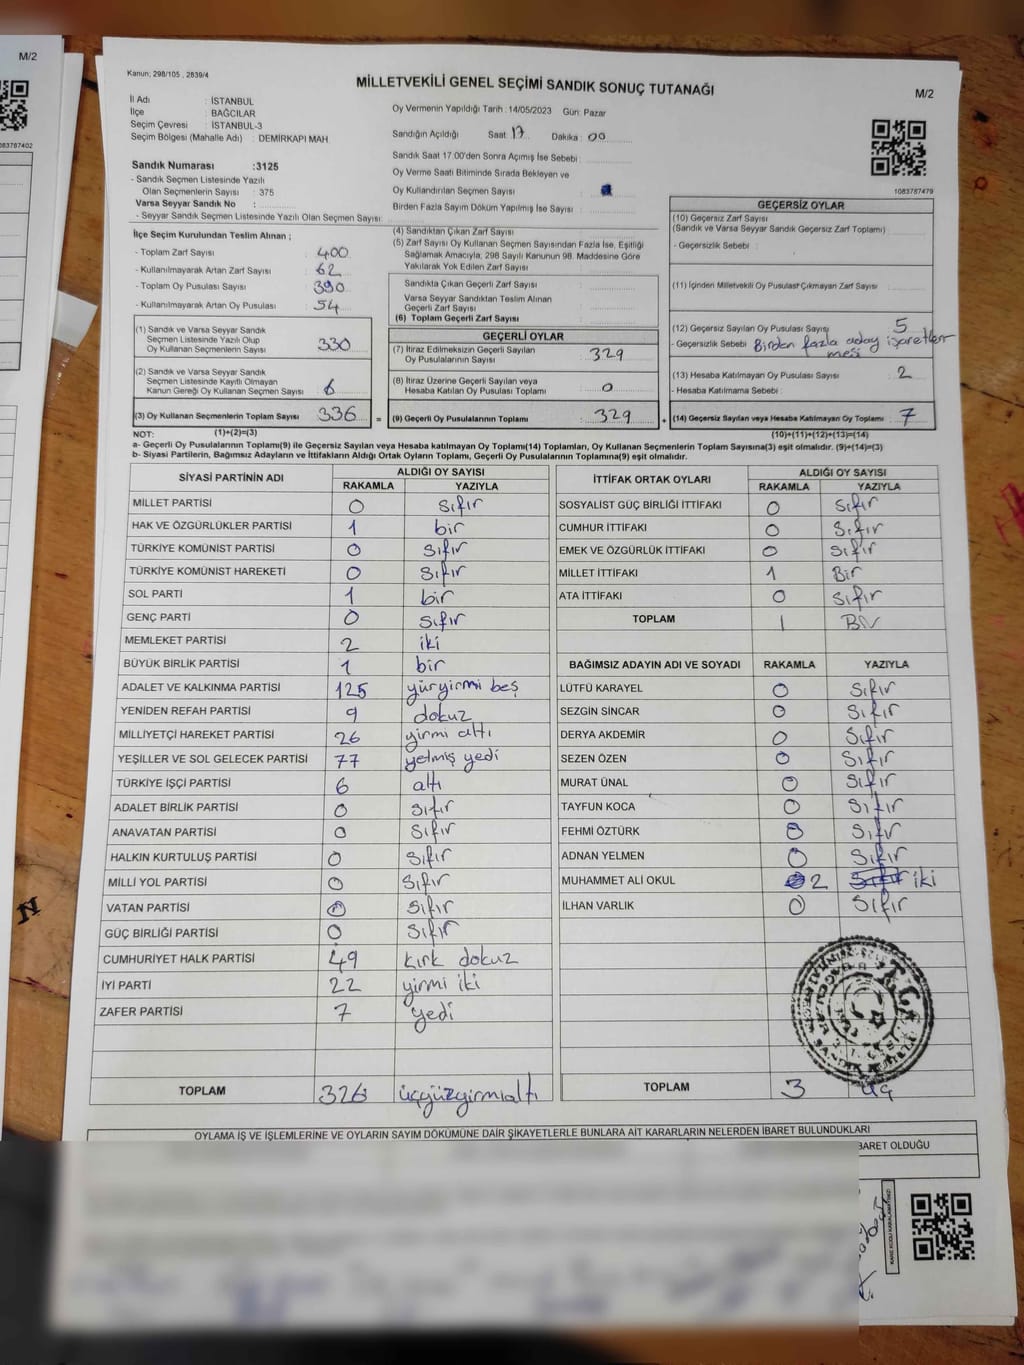 M/2
083787402
Kanun; 298/105 , 2839/4
MİLLETVEKİLİ GENEL SEÇİMİ SANDIK SONUÇ TUTANAĞI
M/2
İl Adı : İSTANBUL
İlçe : BAĞCILAR
Seçim Çevresi : İSTANBUL-3
Seçim Bölgesi (Mahalle Adı) : DEMİRKAPI MAH
Oy Vermenin Yapıldığı Tarih : 14/05/2023 Gün: Pazar
Sandığın Açıldığı Saat 17 Dakika : 00
Sandık Saat 17:00'den Sonra Açılmış İse Sebebi :
Oy Verme Saati Bitiminde Sırada Bekleyen ve
Oy Kullandırılan Seçmen Sayısı :
Birden Fazla Sayım Döküm Yapılmış İse Sayısı :
1083787479
Sandık Numarası :3125
- Sandık Seçmen Listesinde Yazılı
Olan Seçmenlerin Sayısı : 375
Varsa Seyyar Sandık No :
- Seyyar Sandık Seçmen Listesinde Yazılı Olan Seçmen Sayısı :
İlçe Seçim Kurulundan Teslim Alınan ;
- Toplam Zarf Sayısı : 400
- Kullanılmayarak Artan Zarf Sayısı : 62
- Toplam Oy Pusulası Sayısı : 390
- Kullanılmayarak Artan Oy Pusulası : 54
(1) Sandık ve Varsa Seyyar Sandık
Seçmen Listesinde Yazılı Olup
Oy Kullanan Seçmenlerin Sayısı : 330
(2) Sandık ve Varsa Seyyar Sandık
Seçmen Listesinde Kayıtlı Olmayan
Kanun Gereği Oy Kullanan Seçmen Sayısı : 6
(3) Oy Kullanan Seçmenlerin Toplam Sayısı : 336 =
(1)+(2)=(3)
(4) Sandıktan Çıkan Zarf Sayısı :
(5) Zarf Sayısı Oy Kullanan Seçmen Sayısından Fazla İse, Eşitliği
Sağlamak Amacıyla; 298 Sayılı Kanunun 98. Maddesine Göre
Yakılarak Yok Edilen Zarf Sayısı :
Sandıkta Çıkan Geçerli Zarf Sayısı :
Varsa Seyyar Sandıktan Teslim Alınan
Geçerli Zarf Sayısı :
(6) Toplam Geçerli Zarf Sayısı :
GEÇERLİ OYLAR
(7) İtiraz Edilmeksizin Geçerli Sayılan
Oy Pusulalarının Sayısı : 329
(8) İtiraz Üzerine Geçerli Sayılan veya
Hesaba Katılan Oy Pusulası Toplamı : 0
(9) Geçerli Oy Pusulalarının Toplamı : 329 +
GEÇERSİZ OYLAR
(10) Geçersiz Zarf Sayısı
(Sandık ve Varsa Seyyar Sandık Geçersiz Zarf Toplamı) :
- Geçersizlik Sebebi :
(11) İçinden Milletvekili Oy Pusulası Çıkmayan Zarf Sayısı :
(12) Geçersiz Sayılan Oy Pusulası Sayısı : 5
- Geçersizlik Sebebi : Birden fazla aday işaretlen
mesi
(13) Hesaba Katılmayan Oy Pusulası Sayısı : 2
- Hesaba Katılmama Sebebi :
(14) Geçersiz Sayılan veya Hesaba Katılmayan Oy Toplamı : 7
(10)+(11)+(12)+(13)=(14)
NOT:
a- Geçerli Oy Pusulalarının Toplamı(9) ile Geçersiz Sayılan veya Hesaba katılmayan Oy Toplamı(14) Toplamları, Oy Kullanan Seçmenlerin Toplam Sayısına(3) eşit olmalıdır. (9)+(14)=(3)
b- Siyasi Partilerin, Bağımsız Adayların ve İttifakların Aldığı Ortak Oyların Toplamı, Geçerli Oy Pusulalarının Toplamına(9) eşit olmalıdır.
SİYASİ PARTİNİN ADI ALDIĞI OY SAYISI
RAKAMLA YAZIYLA
MİLLET PARTİSİ 0 sıfır
HAK VE ÖZGÜRLÜKLER PARTİSİ 1 bir
TÜRKİYE KOMÜNİST PARTİSİ 0 sıfır
TÜRKİYE KOMÜNİST HAREKETİ 0 sıfır
SOL PARTİ 1 bir
GENÇ PARTİ 0 sıfır
MEMLEKET PARTİSİ 2 iki
BÜYÜK BİRLİK PARTİSİ 1 bir
ADALET VE KALKINMA PARTİSİ 125 yüryirmi beş
YENİDEN REFAH PARTİSİ 9 dokuz
MİLLİYETÇİ HAREKET PARTİSİ 26 yirmi altı
YEŞİLLER VE SOL GELECEK PARTİSİ 77 yetmiş yedi
TÜRKİYE İŞÇİ PARTİSİ 6 altı
ADALET BİRLİK PARTİSİ 0 sıfır
ANAVATAN PARTİSİ 0 sıfır
HALKIN KURTULUŞ PARTİSİ 0 sıfır
MİLLİ YOL PARTİSİ 0 sıfır
VATAN PARTİSİ 0 sıfır
GÜÇ BİRLİĞİ PARTİSİ 0 sıfır
CUMHURİYET HALK PARTİSİ 49 kırk dokuz
İYİ PARTİ 22 yirmi iki
ZAFER PARTİSİ 7 yedi
TOPLAM 326 üçyüzyirmialtı
İTTİFAK ORTAK OYLARI ALDIĞI OY SAYISI
RAKAMLA YAZIYLA
SOSYALİST GÜÇ BİRLİĞİ İTTİFAKI 0 sıfır
CUMHUR İTTİFAKI 0 sıfır
EMEK VE ÖZGÜRLÜK İTTİFAKI 0 sıfır
MİLLET İTTİFAKI 1 Bir
ATA İTTİFAKI 0 sıfır
TOPLAM 1 Bir
BAĞIMSIZ ADAYIN ADI VE SOYADI RAKAMLA YAZIYLA
LÜTFÜ KARAYEL 0 sıfır
SEZGİN SİNCAR 0 sıfır
DERYA AKDEMİR 0 sıfır
SEZEN ÖZEN 0 sıfır
MURAT ÜNAL 0 sıfır
TAYFUN KOCA 0 sıfır
FEHMİ ÖZTÜRK 0 sıfır
ADNAN YELMEN 0 sıfır
MUHAMMET ALİ OKUL 2 iki
İLHAN VARLIK 0 sıfır
TOPLAM 3 üç
OYLAMA İŞ VE İŞLEMLERİNE VE OYLARIN SAYIM DÖKÜMÜNE DAİR ŞİKAYETLERLE BUNLARA AİT KARARLARIN NELERDEN İBARET BULUNDUKLARI
BARET OLDUĞU